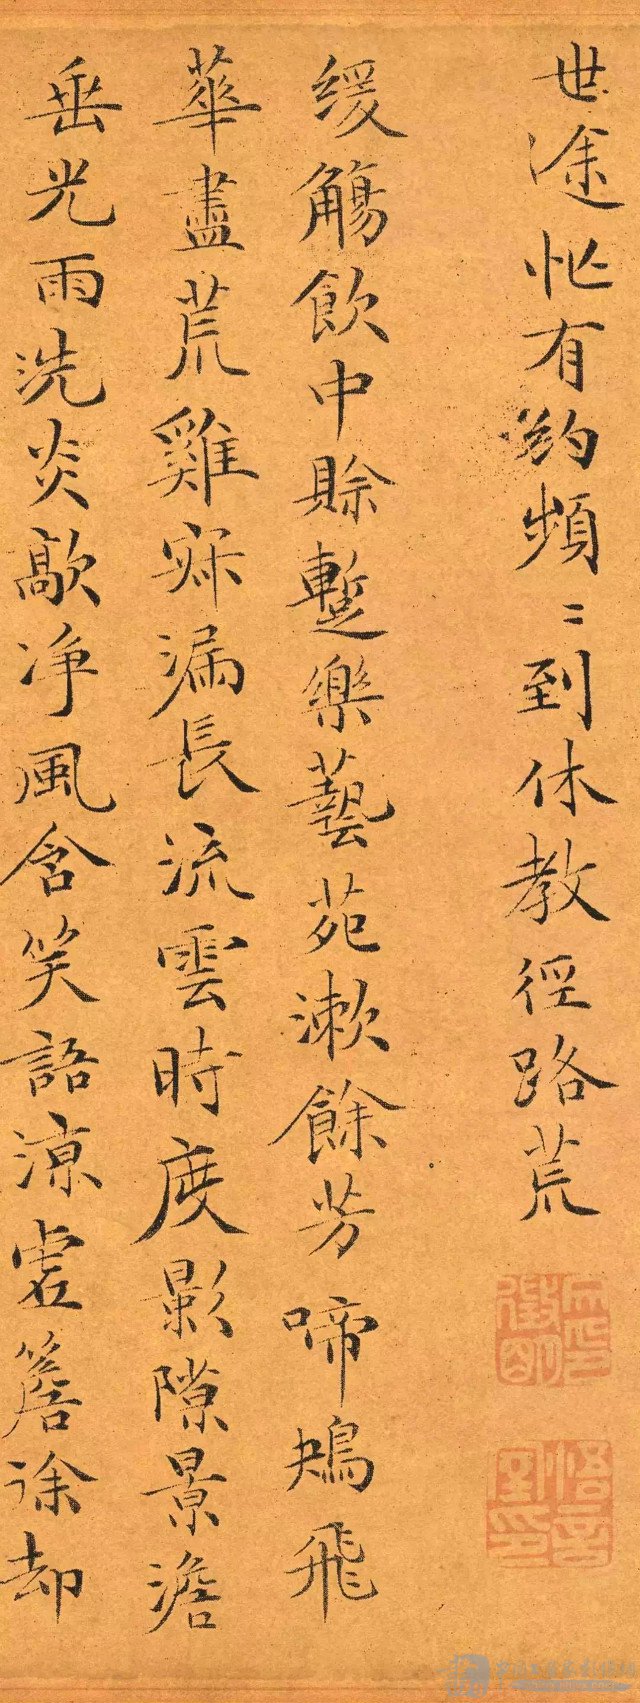 世途忙有約頻〻到休教徑路荒
緩觴飲中賒蹔樂藝苑漱餘芳啼鴂飛
華盡荒雞寐漏長流雲時度影隙景澹
垂光雨洗炎歊净風含笑語涼虛簷徐却
徵明